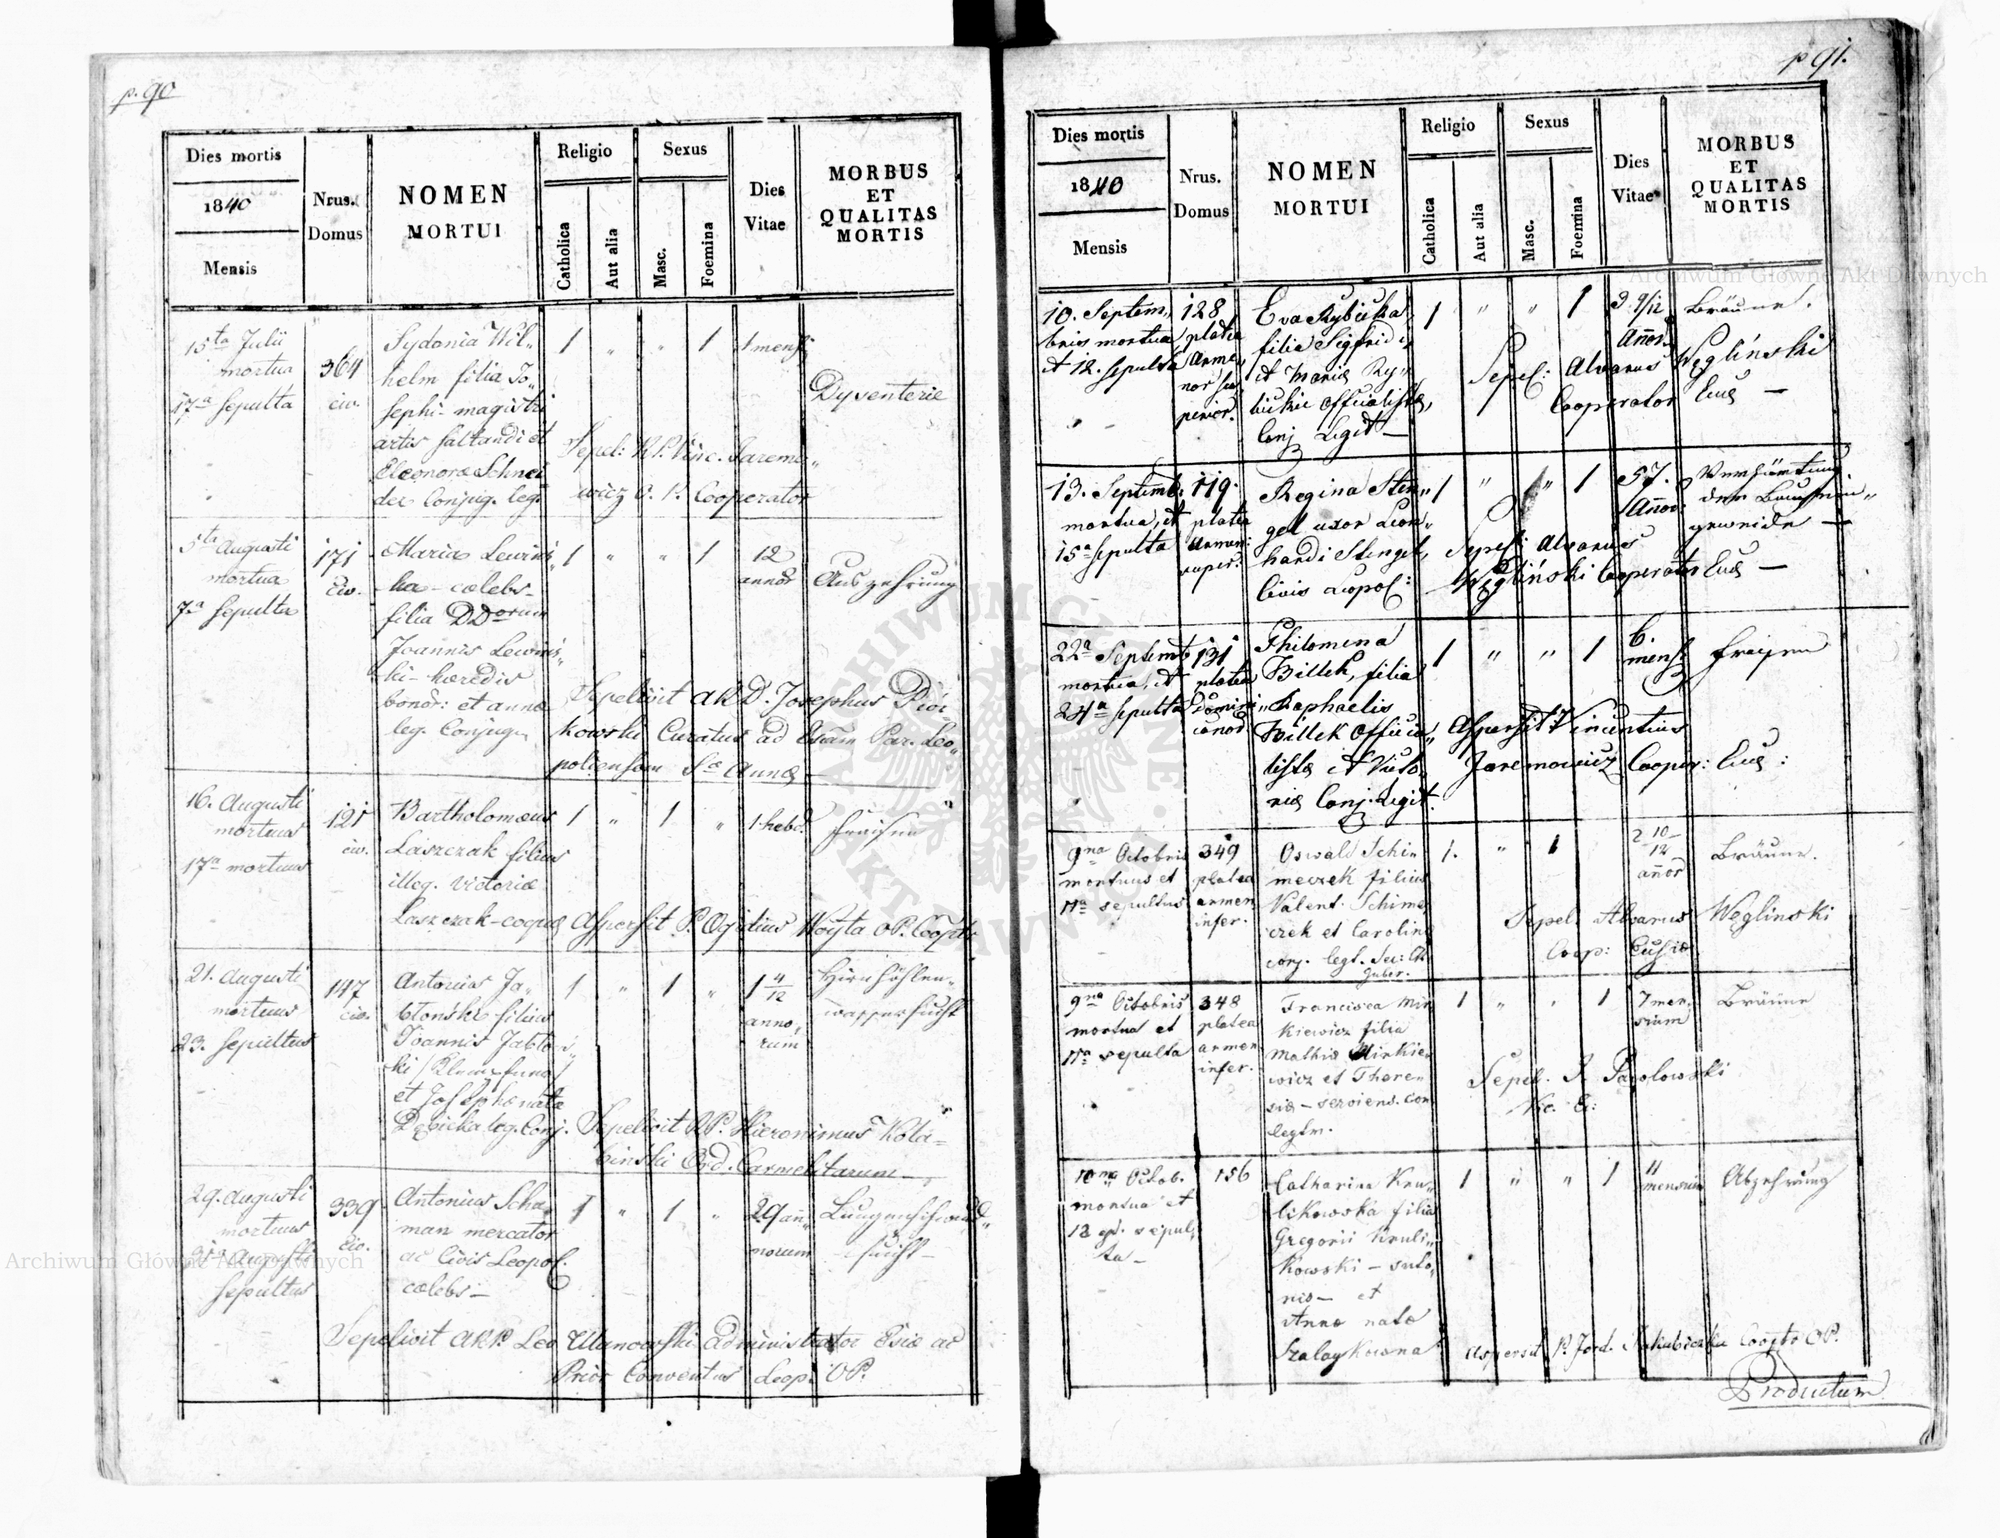 p. 90
Dies mortis
1840
Mensis
Nrus.
Domus
NOMEN
MORTUI
Religio
Catholica
Aut alia
Sexus
Masc.
Foemina
Dies
Vitae
MORBUS
ET
QUALITAS
MORTIS
15ta Julii
mortua
17a sepulta
364
civ.
Sydonia Wil„
helm filia Jo„
sephi magistri
artis saltandi et
Eleonorae Schnei
der Conjug. leg.
1 „ „ 1
1 mens.
Dysenterie
Sepel: R.P. Vinc. Jaremo„
wicz O. P. Cooperator
5ta Augusti
mortua
7a sepulta
171
Civ.
Maria Lewińs
ka - caelebs -
filia DDorum
Joannis Lewińs„
ki - haeredis
bonor: et Annae
leg. Conjug.
1 „ „ 1
12
annor
Auszehrung
Sepelivit A.R.D. Josephus
kowski Curatus ad Par. Leo„
poliensem Sae Annae
16. Augusti
mortuus
17a mortuus
121
civ.
Bartholomaeus
Laszczak filius
illeg. Victoriae
Laszczak - coquae
1 „ 1 „
1. hebd.
Fraisen
Aspersit P. Egidius Woyta OP. Coop
21. Augusti
mortuus
23. sepultus
147
civ.
Antonius Ja„
błoński filius
Joannis Jabłoń„
ki
et Josephae nata
Dębicka leg. Conj.
1 „ 1 „
1 4/12
anno„
rum
Hirnhöhlen„
wassersucht
Sepelivit R.P. Hieronimus Kola=
biński Ord. Carmelitarum
29. Augusti
mortuus
31a Augusti
sepultus
339
Civ.
Antonius Scha„
man mercator
ac Civis Leopol.
caelebs -
1 „ 1 „
29 añ„
norum
Lungenschwind„
sucht -
Sepelivit A.R.P. Leo Ulanowski administrator Esiae ac
Prior Conventus Leop. OP.
p 91.
Dies mortis
1840
Mensis
Nrus.
Domus
NOMEN
MORTUI
Religio
Catholica
Aut alia
Sexus
Masc.
Foemina
Dies
Vitae
MORBUS
ET
QUALITAS
MORTIS
10. Septem„
bris mortua
et 12. sepulta
128
platea
Arme„
nor su
perior.
Eva Rybicka
filia Sigfridi,
et Mariae Ry„
bickie Officialistae,
Conj Legit -
1 „ „ 1
3. 9/12
Añor.
Bräune.
Sepel: Alvarus Węgliński
Cooperator Eccl -
13. Septemb:
mortua, et
15a sepulta
119.
platea
Armen:
super:
Regina Sten„
gel uxor Leon„
hardi Stengel,
Civis Leopol:
1 „ „ 1
57.
Añor:
Verhärtung
der Bauchein„
geweide -
Sepel: Alvarus
Węgliński Cooperator Eccl -
22a Septemb
mortua, et
24a sepulta
131
platea
Domini„
canor
Philomena
Bittek, filia
Raphaelis
Bittek Officia„
listae et Victo„
riae Conj. Legit.
1 „ „ 1
6.
mens.
Fraisen
Aspersit Vincentius
Jaremowicz Cooper: Eccl:
9na Octobris
mortuus et
11a sepultus
349
platea
armen.
infer.
Oswald Schi„
meczek filius
Valent: Schime
czek et Carolinae
conj. legt.
Guber.
1. „ 1
2 10/12
añor
Bräune.
Sepel. Alvarus Węglinski
Coop:
9na Octobris
mortua et
11a sepulta
348
platea
armen
infer.
Francisca Min
kiewicz filia
Mathiae Minkie„
wicz et There„
siae - serviens. con
legtm.
1 „ „ 1
7 men„
sium
Bräune
Sepel. J. Pawlowski
Vic. E:
10ma Octob.
mortua et
12 ej. sepul„
ta -
156
Catharina Kru„
likowska filia
Gregorii Kruli„
kowski - suto„
ris - et
Annae nata
Szalaykowna
1 „ „ 1
11
mensium
Abzehrung
Aspersit P. Jord. Jakubiczka Coopto OP.
Productum
Archiwum Główne Akt Dawnych
Archiwum Główne Akt Dawnych
ARCHIWUM GŁÓWNE AKT DAWNYCH